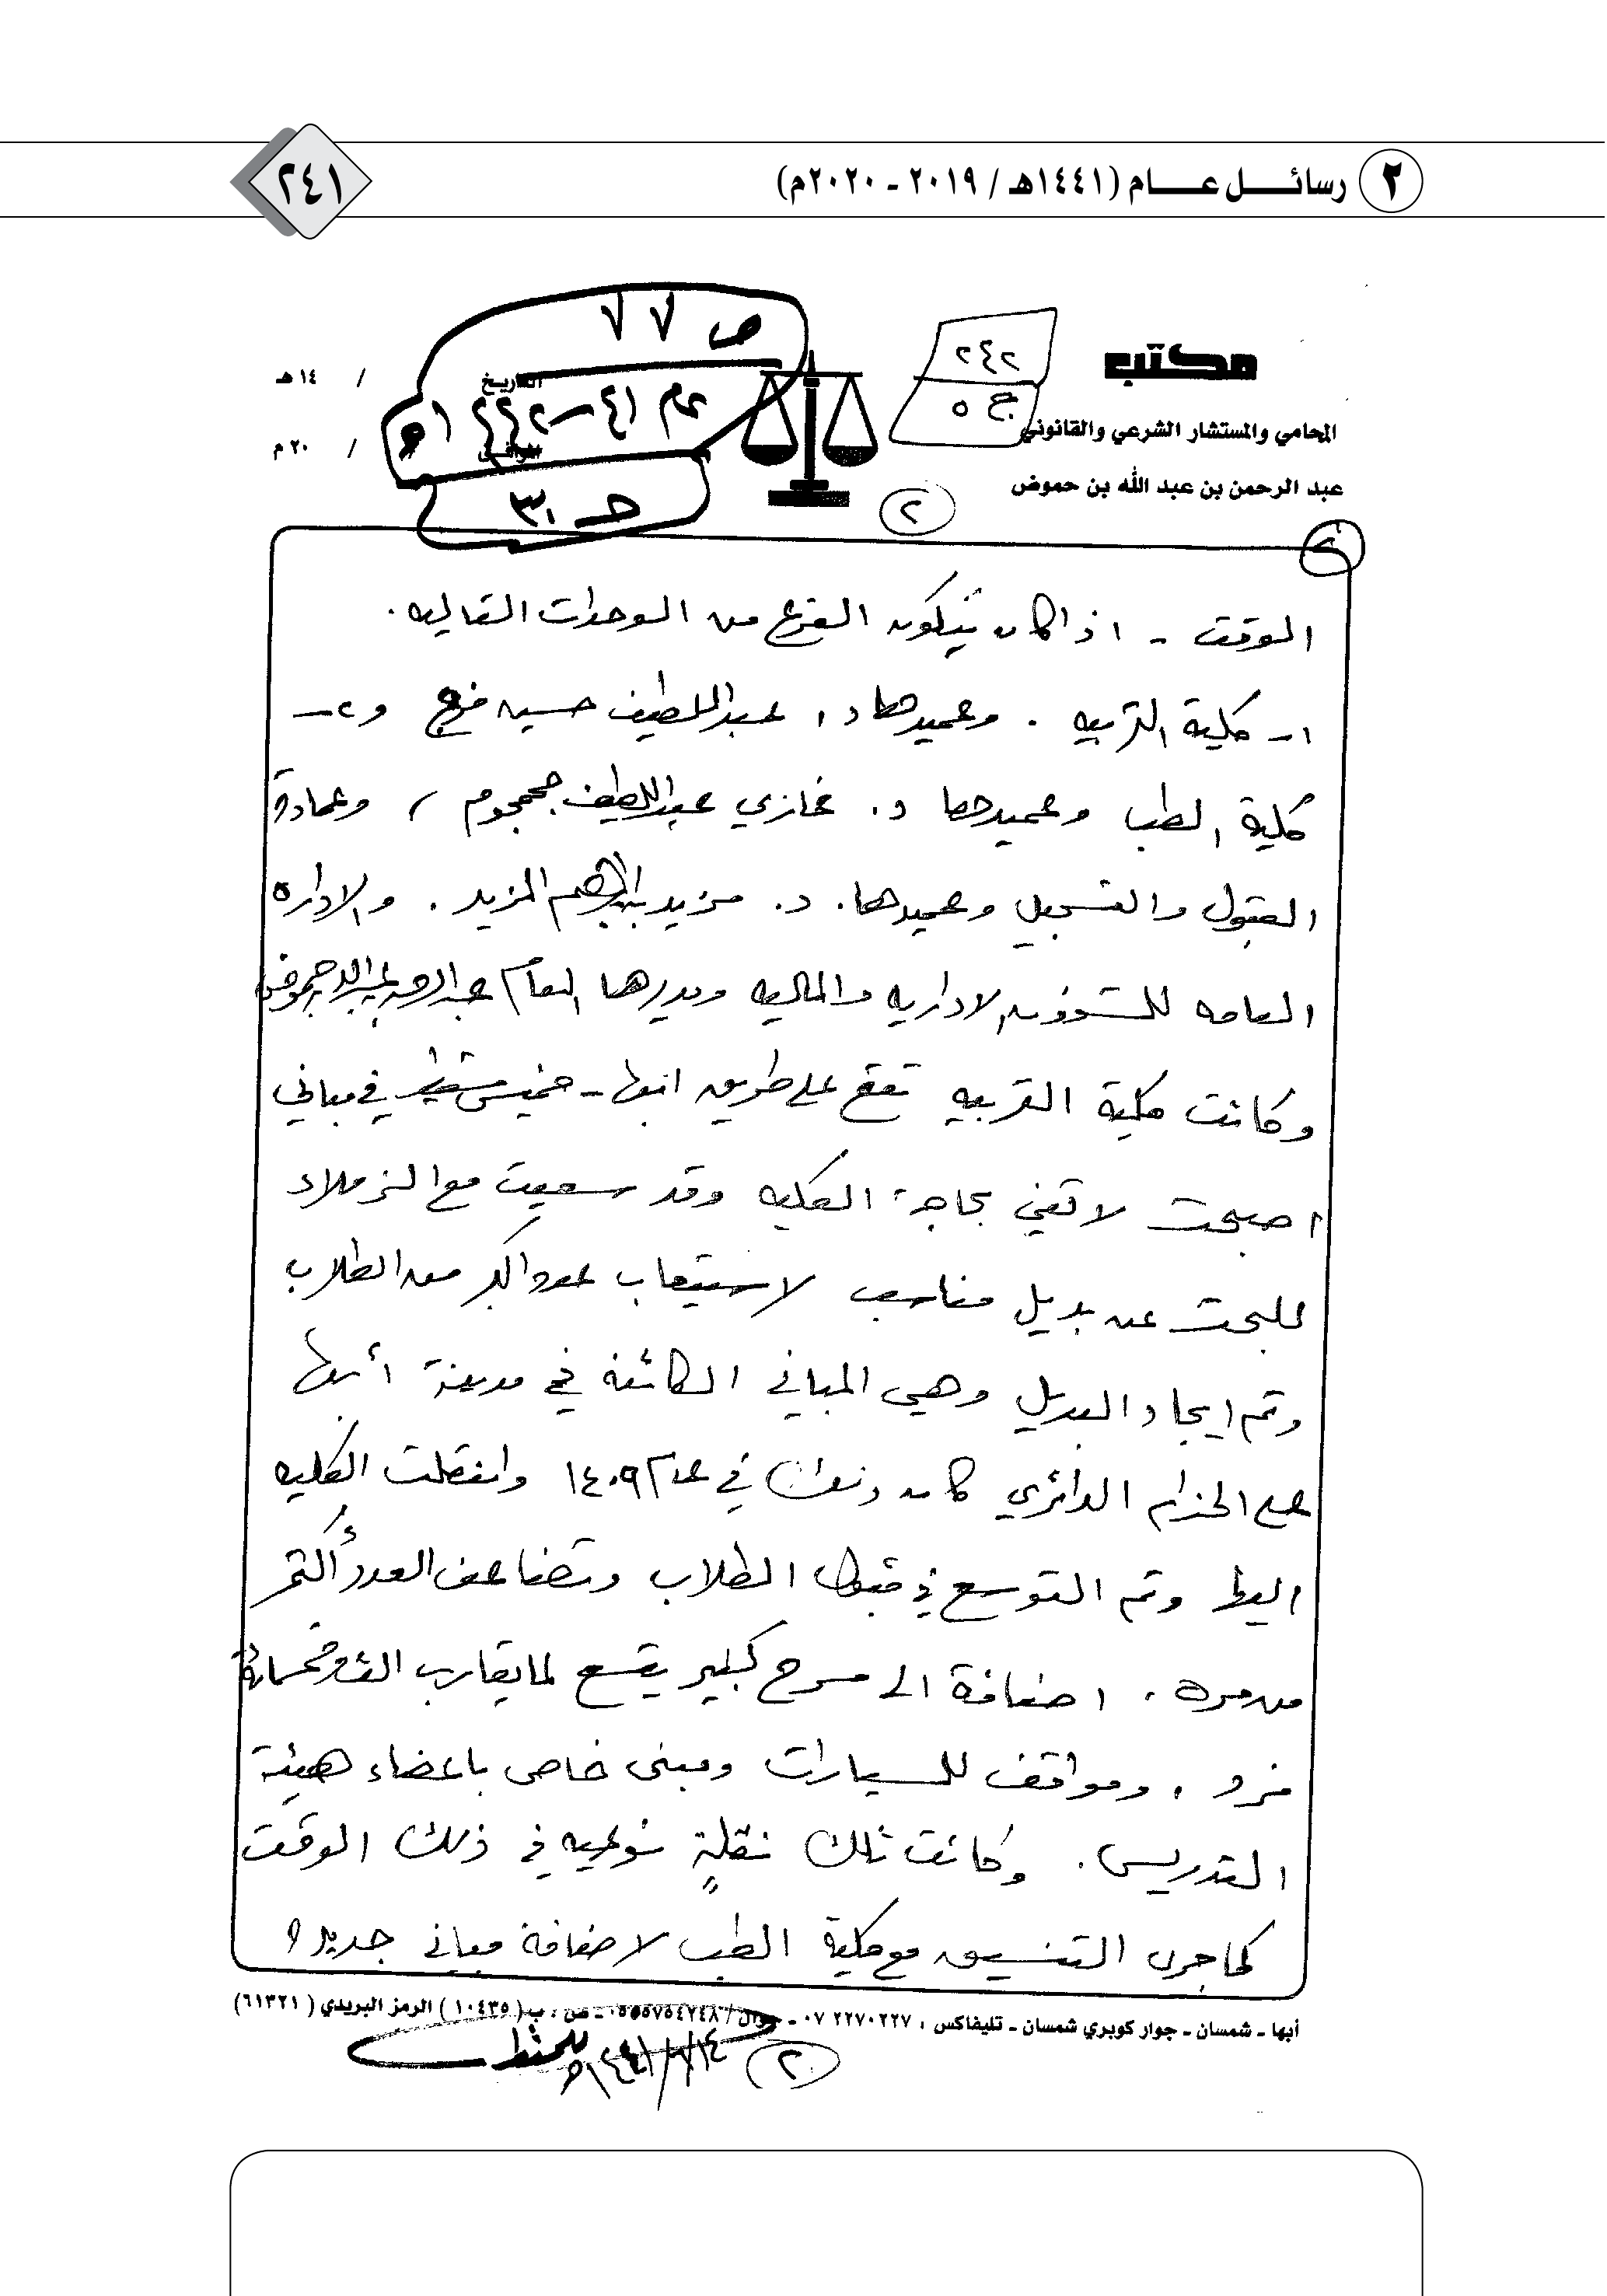 ٢ رسائـــل عــــام (١٤٤١هـ / ٢٠١٩ - ٢٠٢٠م)
٢٤١
مكتب
المحامي والمستشار الشرعي والقانوني
عبد الرحمن بن عبد الله بن حموض
٢٤٢
ج ٥
ص ٧٧
عام ٤١-١٤٤٢هـ
التاريخ / / ١٤هـ
الموافق / / ٢٠م
٢
الوقت - اذ كان يتكون الفرع من الوحدات التاليه .
١- كلية التربيه . وعميدها د. عبداللطيف حسين فرج و٢-
كلية الطب وعميدها د. غازي عبداللطيف جمجوم ، وعمادة
القبول والتسجيل وعميدها . د. مزيد ابراهيم المزيد . والاداره
العامه للشؤون الاداريه والماليه ومديرها العام عبدالرحمن عبدالله حموض
وكانت كلية التربيه تقع على طريق ابها - خميس مشيط في مباني
اصبحت لا تفي بحاجة الكليه وقد سعيت مع الزملاء
للبحث عن بديل مناسب لاستيعاب عدد اكبر من الطلاب
وتم ايجاد البديل وهي المباني الكائنه في مدينة أبها
على الحزام الدائري كان ذلك في عام ١٤٠٩ وانتقلت الكليه
اليها وتم التوسع في قبول الطلاب وتضاعف العدد أكثر
من مره . اضافة الى مسرح كبير يتسع لما يقارب الف وخمسمائة
فرد . ومواقف للسيارات ومبنى خاص باعضاء هيئة
التدريس . وكانت تلك نقلةٍ نوعيه في ذلك الوقت
كما جرى التنسيق مع كلية الطب لاضافة مباني جديده
أبها - شمسان - جوار كوبري شمسان - تليفاكس : ٢٢٧٠٢٢٧ ٠٧ - جوال / ٠٥٥٥٧٥٤٢٤٨ - ص . ب ( ١٠٤٣٥ ) الرمز البريدي ( ٦١٣٢١)
٢